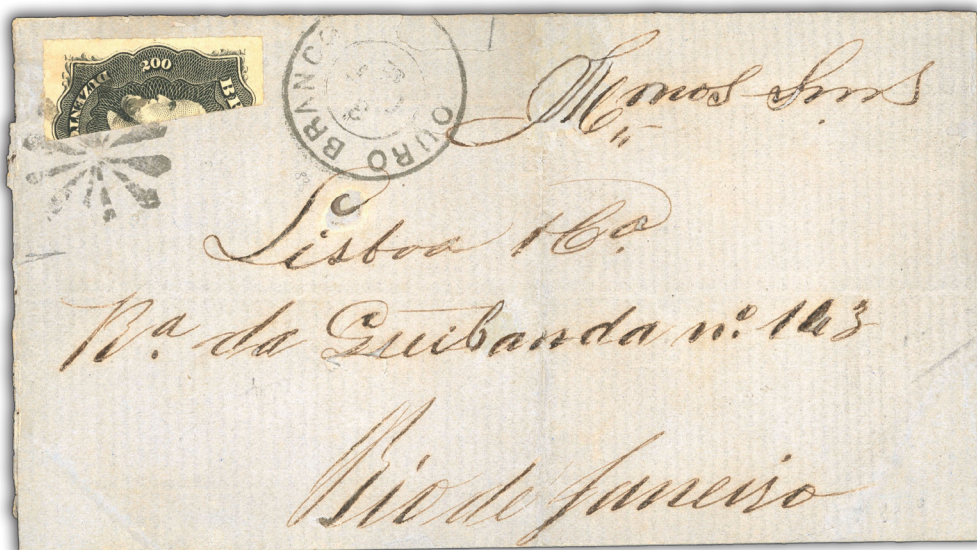 200
DUZENT
BR
OURO BRANCO
Mmos Snrs
Lisboa & Ca
Ra da Quitanda nº 143
Rio de Janeiro